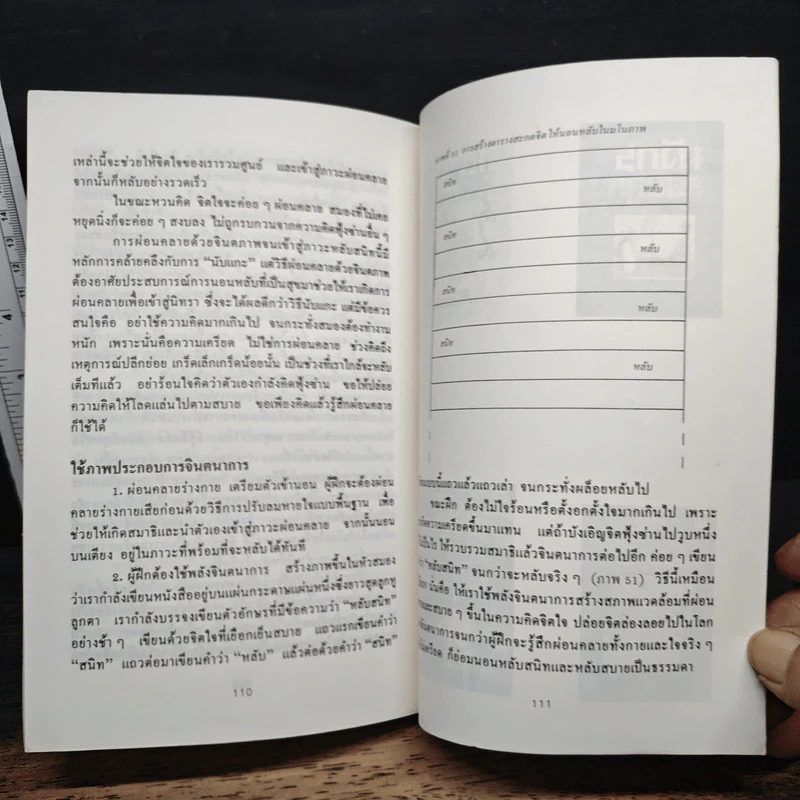 เหล่านี้จะช่วยให้จิตใจของเรารวมศูนย์ และเข้าสู่ภาวะผ่อนคลาย
จากนั้นก็หลับอย่างรวดเร็ว
ในขณะหวนคิด จิตใจจะค่อย ๆ ผ่อนคลาย สมองที่ไม่เคย
หยุดนิ่งก็จะค่อย ๆ สงบลง ไม่ถูกรบกวนจากความคิดฟุ้งซ่านอื่น ๆ
การผ่อนคลายด้วยจินตภาพจนเข้าสู่ภาวะหลับสนิทนี้มี
หลักการคล้ายคลึงกับการ “นับแกะ” แต่วิธีผ่อนคลายด้วยจินตภาพ
ต้องอาศัยประสบการณ์การนอนหลับที่เป็นสุขมาช่วยให้เราเกิดการ
ผ่อนคลายเพื่อเข้าสู่นิทรา ซึ่งจะได้ผลดีกว่าวิธีนับแกะ แต่มีข้อควร
สนใจคือ อย่าใช้ความคิดมากเกินไป จนกระทั่งสมองต้องทำงาน
หนัก เพราะนั่นคือความเครียด ไม่ใช่การผ่อนคลาย ช่วงคิดถึง
เหตุการณ์ปลีกย่อย เกร็ดเล็กเกร็ดน้อยนั้น เป็นช่วงที่เราใกล้จะหลับ
เต็มทีแล้ว อย่าร้อนใจคิดว่าตัวเองกำลังคิดฟุ้งซ่าน ขอให้ปล่อย
ความคิดให้โลดแล่นไปตามสบาย ขอเพียงคิดแล้วรู้สึกผ่อนคลาย
ก็ใช้ได้
ใช้ภาพประกอบการจินตนาการ
1. ผ่อนคลายร่างกาย เตรียมตัวเข้านอน ผู้ฝึกจะต้องผ่อน
คลายร่างกายเสียก่อนด้วยวิธีการปรับลมหายใจแบบพื้นฐาน เพื่อ
ช่วยให้เกิดสมาธิและนำตัวเองเข้าสู่ภาวะผ่อนคลาย จากนั้นนอน
บนเตียง อยู่ในภาวะที่พร้อมที่จะหลับได้ทันที
2. ผู้ฝึกต้องใช้พลังจินตนาการ สร้างภาพขึ้นในหัวสมอง
ว่าเรากำลังเขียนหนังสืออยู่บนแผ่นกระดาษแผ่นหนึ่งซึ่งยาวสุดลูกหู
ลูกตา เรากำลังบรรจงเขียนตัวอักษรที่มีข้อความว่า “หลับสนิท”
อย่างช้า ๆ เขียนด้วยจิตใจที่เยือกเย็นสบาย แถวแรกเขียนคำว่า
“สนิท” แถวต่อมาเขียนคำว่า “หลับ” แล้วต่อด้วยคำว่า “สนิท”
110
ภาพที่ 51 การสร้างตารางสะกดจิตให้นอนหลับในมโนภาพ
สนิท
หลับ
สนิท
หลับ
สนิท
หลับ
สนิท
หลับ
แบบนี้แถวแล้วแถวเล่า จนกระทั่งผล็อยหลับไป
ขณะฝึก ต้องไม่ใจร้อนหรือตั้งอกตั้งใจมากเกินไป เพราะ
ความเครียดขึ้นมาแทน แต่ถ้าบังเอิญจิตฟุ้งซ่านไปวูบหนึ่ง
ให้รวบรวมสมาธิแล้วจินตนาการต่อไปอีก ค่อย ๆ เขียน
“หลับสนิท” จนกว่าจะหลับจริง ๆ (ภาพ 51) วิธีนี้เหมือน
นั่นคือ ให้เราใช้พลังจินตนาการสร้างสภาพแวดล้อมที่ผ่อน
และสบาย ๆ ขึ้นในความคิดจิตใจ ปล่อยจิตล่องลอยไปในโลก
จินตนาการจนกว่าผู้ฝึกจะรู้สึกผ่อนคลายทั้งกายและใจจริง ๆ
ไม่เครียด ก็ย่อมนอนหลับสนิทและหลับสบายเป็นธรรมดา
111